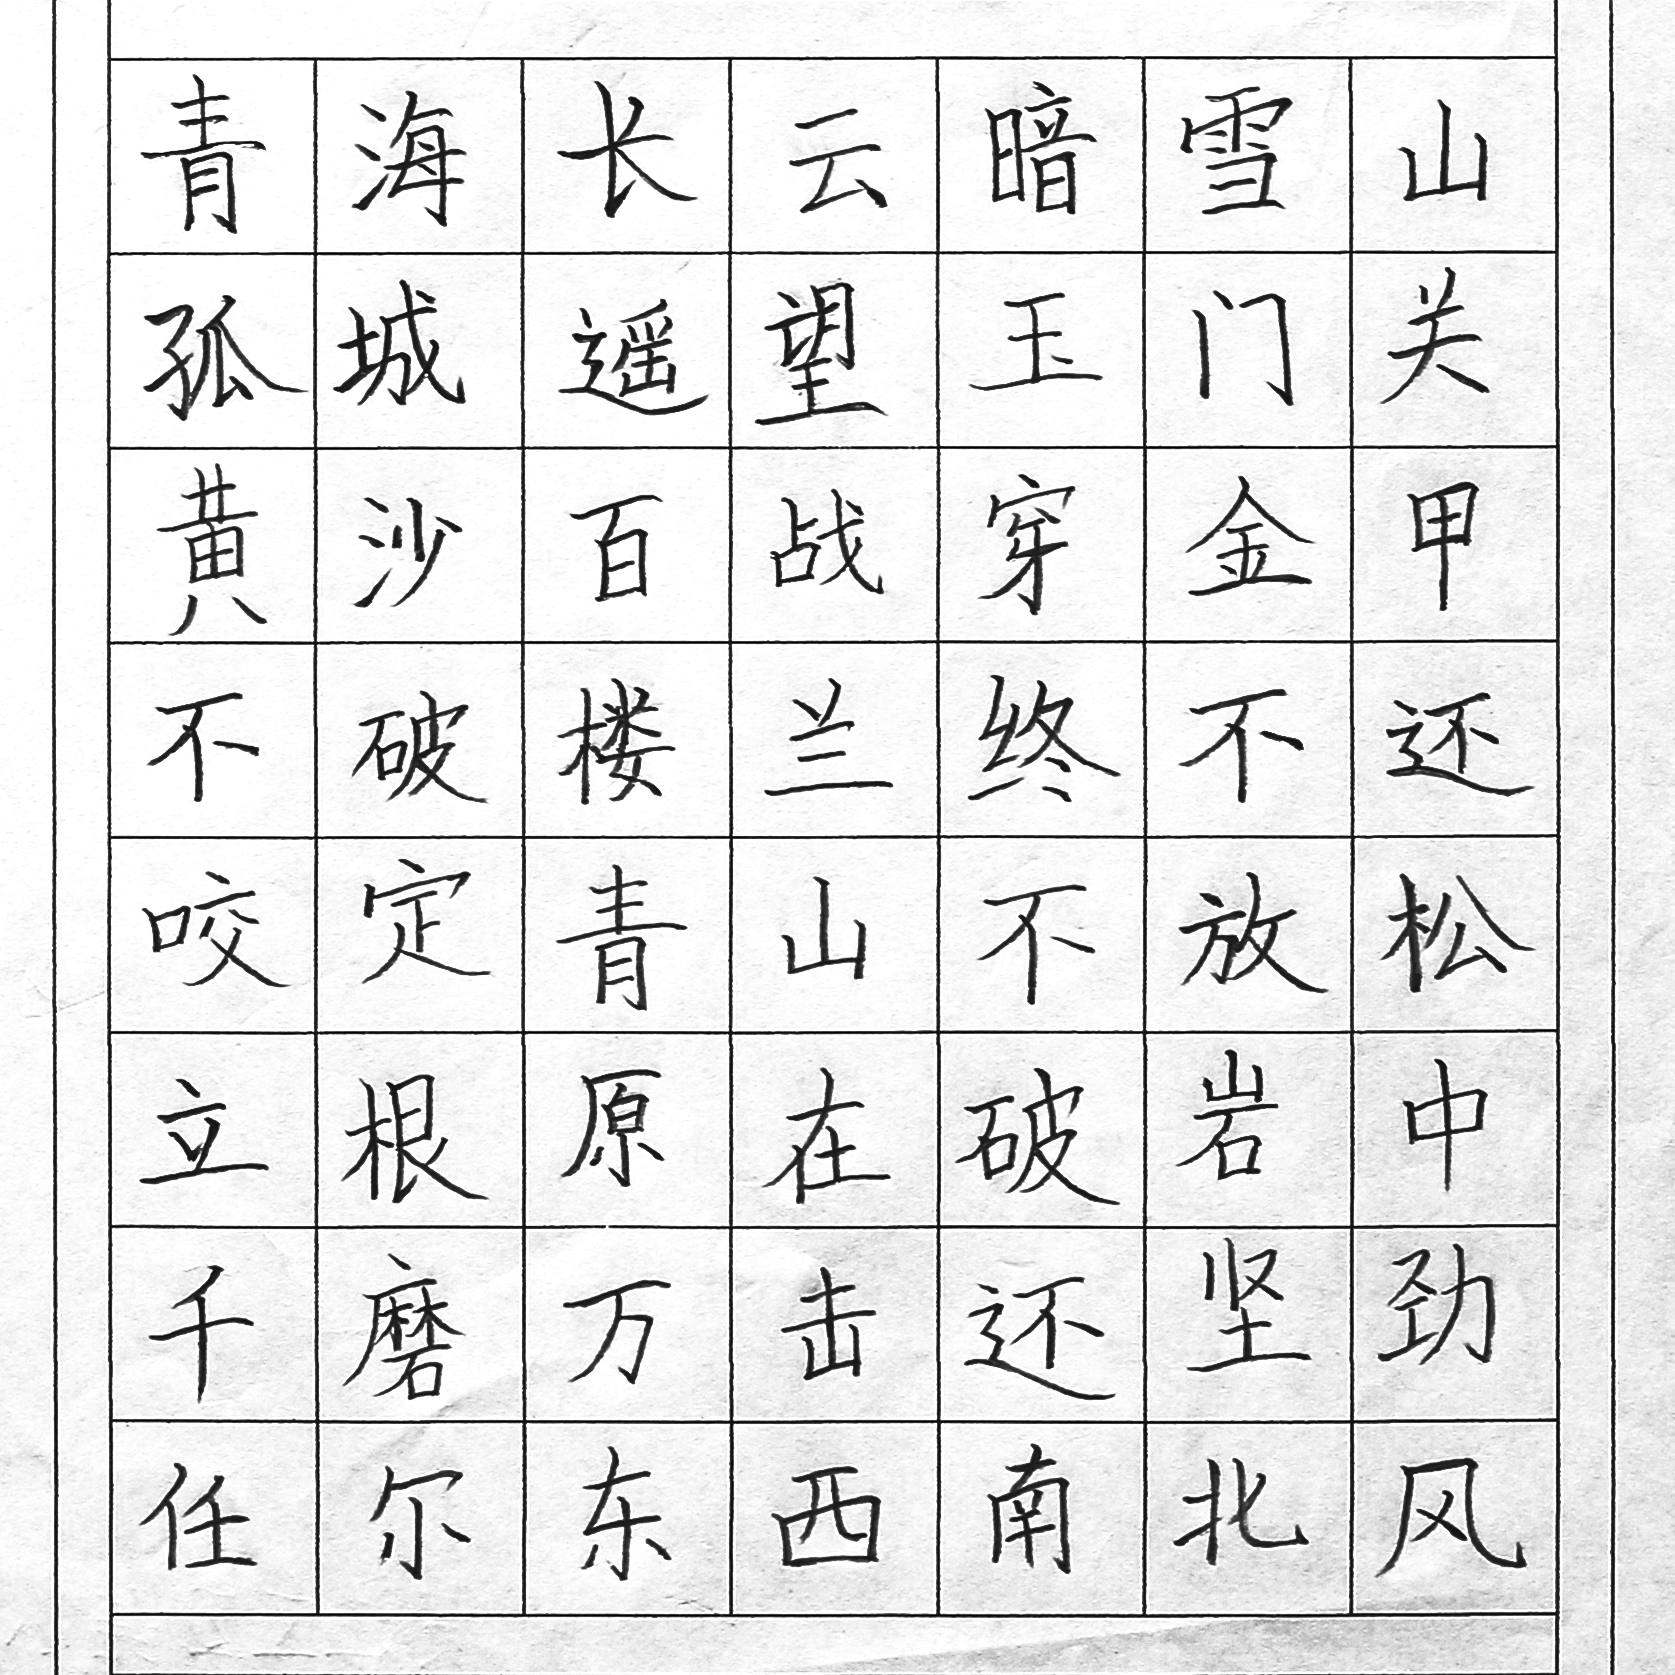 青海长云暗雪山
孤城遥望玉门关
黄沙百战穿金甲
不破楼兰终不还
咬定青山不放松
立根原在破岩中
千磨万击还坚劲
任尔东西南北风